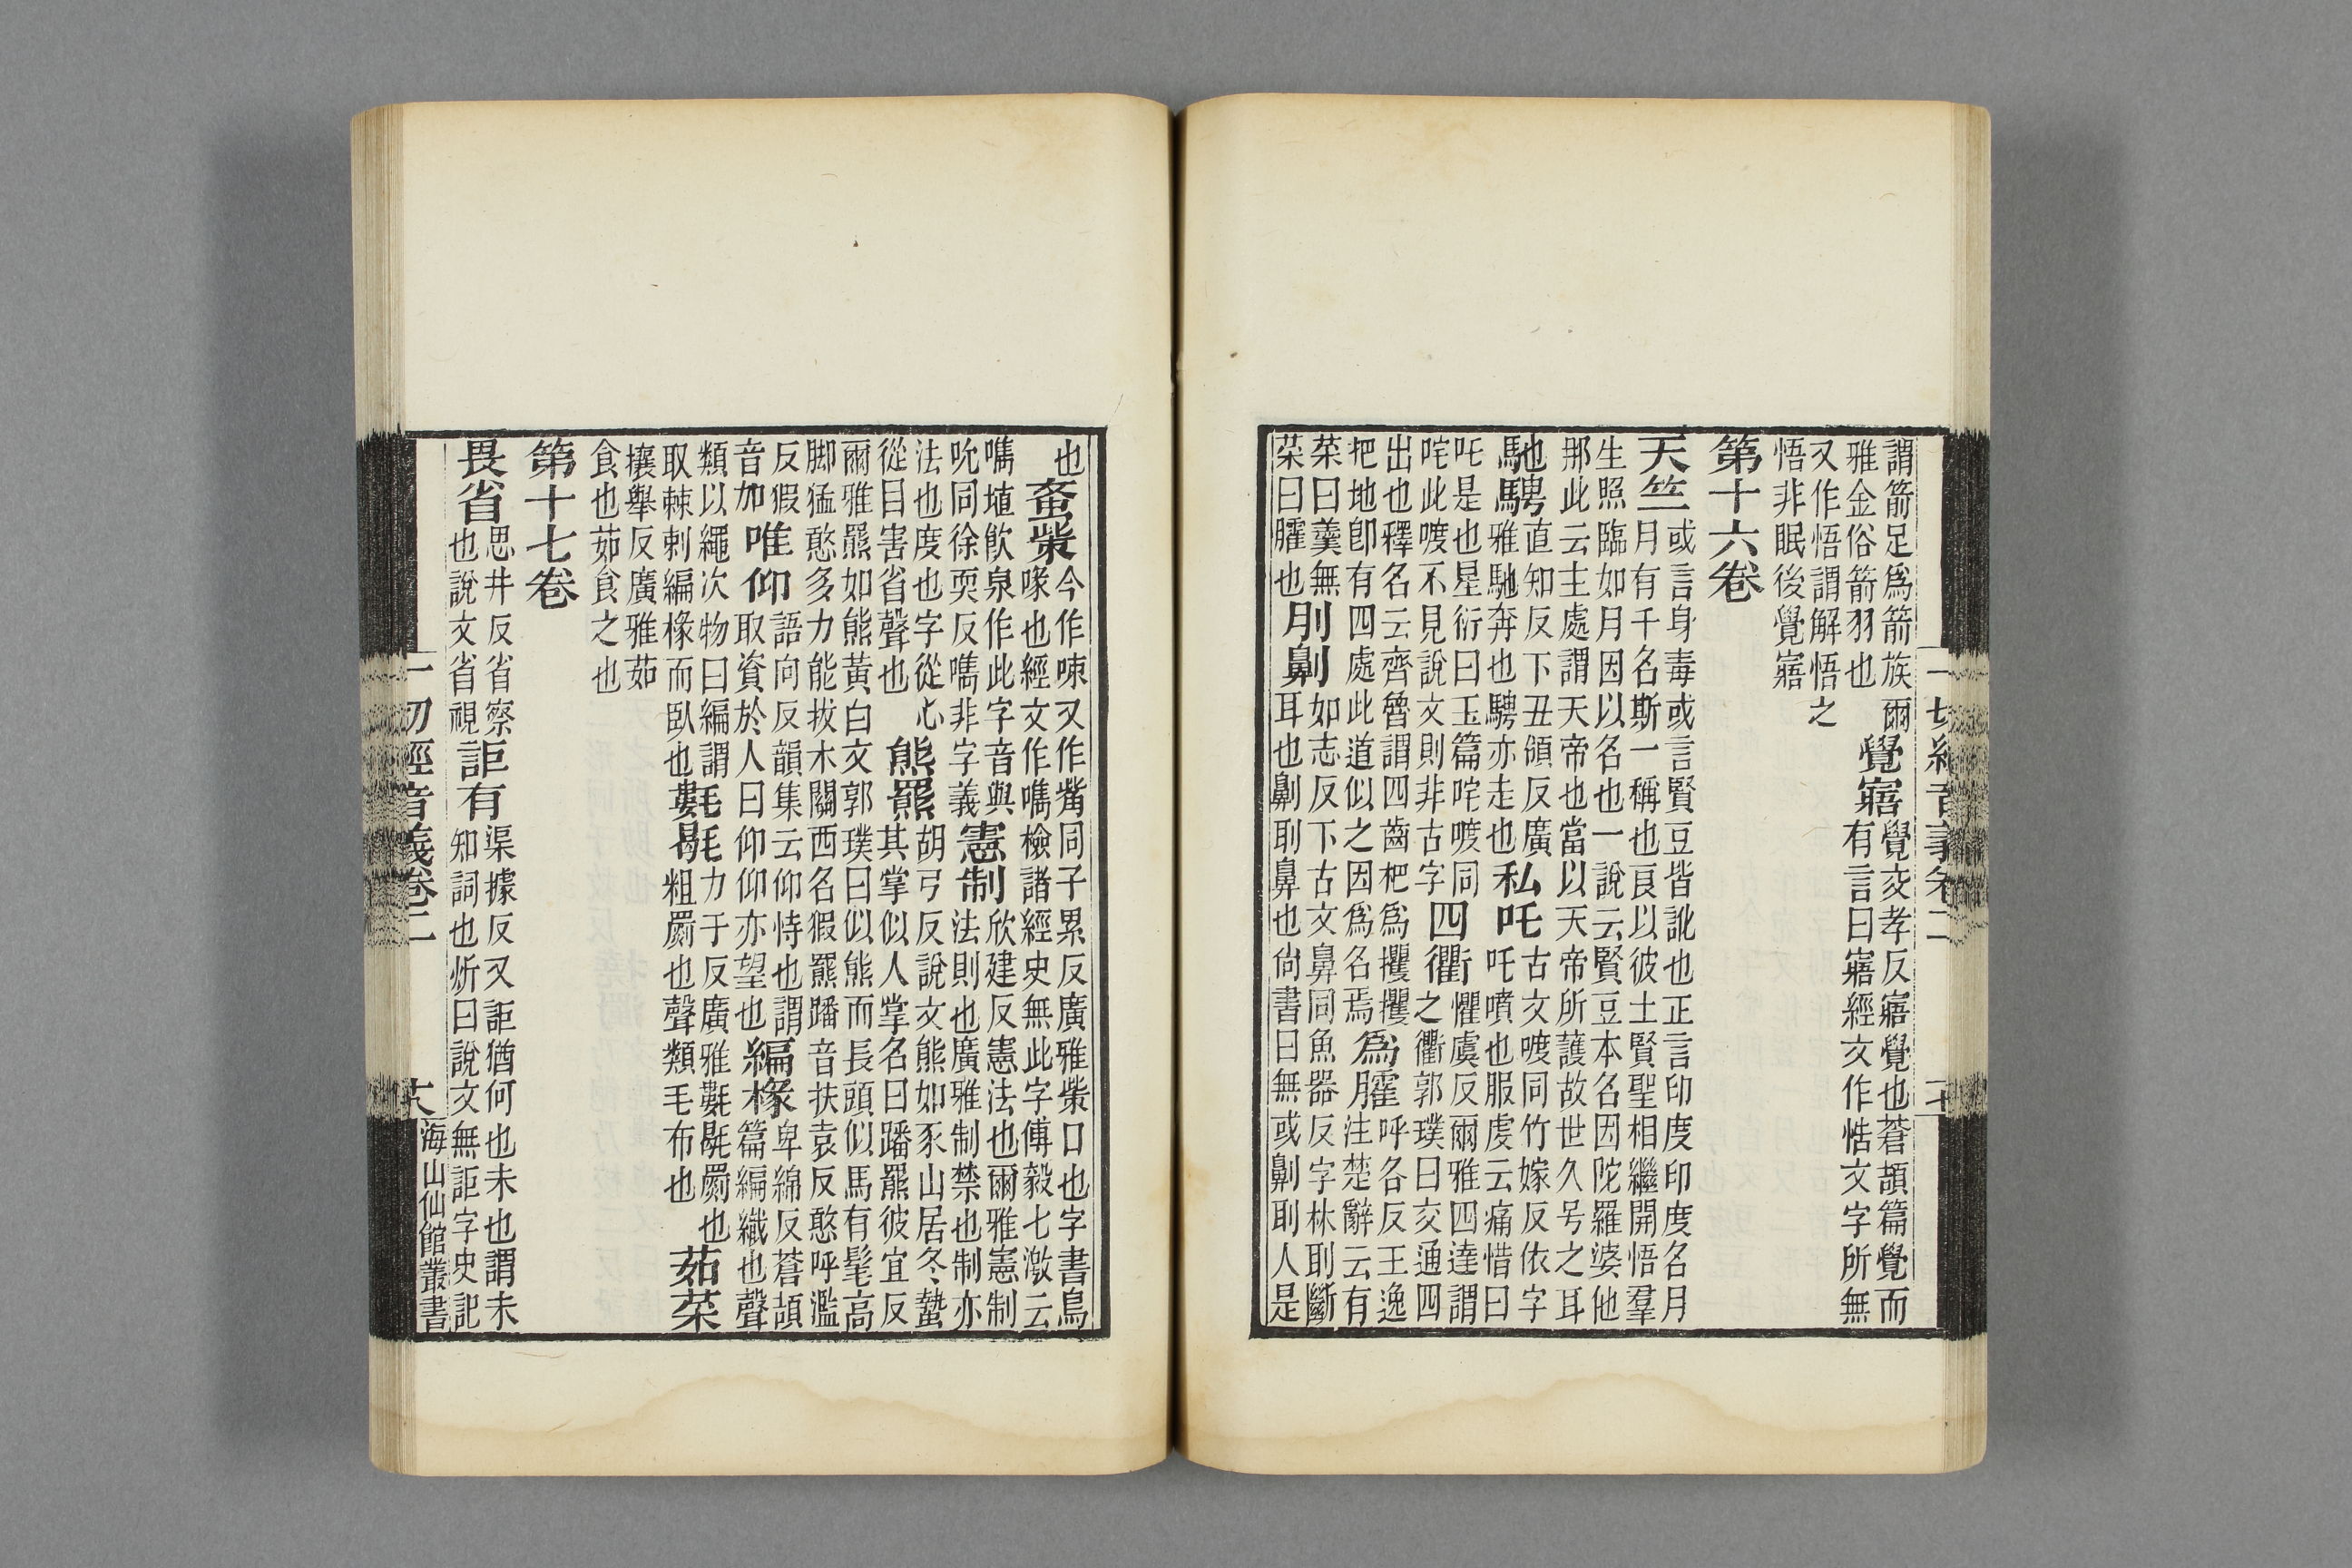 謂箭足爲箭族爾雅金俗箭羽也覺寤覺交孝反寤覺也蒼頡篇覺而有言曰寤經文作悎文字所無
又作悟謂解悟之悟非眠後覺寤
第十六卷
天竺或言身毒或言賢豆皆訛也正言印度印度名月月有千名斯一稱也良以彼土賢聖相繼開悟羣
生照臨如月因以名也一說云賢豆本名因陀羅婆他那此云主處謂天帝也當以天帝所護故世久号之耳
馳騁直知反下丑領反廣雅馳奔也騁亦走也私吒古文喥同竹嫁反依字吒噴也服虔云痛惜曰
吒是也星衍曰玉篇咤喥同咤此喥不見說文則非古字四衢懼虞反爾雅四達謂之衢郭璞曰交通四
出也釋名云齊魯謂四齒杷爲欋欋把地卽有四處此道似之因爲名焉爲臛呼各反王逸注楚辭云有
菜曰羹無菜曰臛也刖劓如志反下古文鼻同魚器反字林刵斷耳也劓刵鼻也尙書曰無或劓刵人是
一切經音義卷二
十七
也蚉㭰今作㖨又作觜同子累反廣雅㭰口也字書鳥喙也經文作㗫檢諸經史無此字傅毅七激云
㗫埴飮泉作此字音與吮同徐耎反㗫非字義憲制欣建反憲法也爾雅憲制法則也廣雅制禁也制亦
法也度也字從心從目害省聲也熊羆胡弓反說文熊如豕山居冬蟄其掌似人掌名曰蹯羆彼宜反
爾雅羆如熊黃白文郭璞曰似熊而長頭似馬有髦高脚猛憨多力能拔木關西名猳羆蹯音扶袁反憨呼濫
反猳音加唯仰語向反韻集云仰恃也謂取資於人曰仰仰亦望也編椽卑綿反蒼頡篇編織也聲
類以繩次物曰編謂取棘刺編椽而臥也氀毼力于反廣雅氀毼罽也粗罽也聲類毛布也茹菜
攘舉反廣雅茹食也茹食之也
第十七卷
畏省思井反省察也說文省視詎有渠據反又詎猶何也未也謂未知詞也炘曰說文無詎字史記
一切經音義卷二
十八
海山仙館叢書